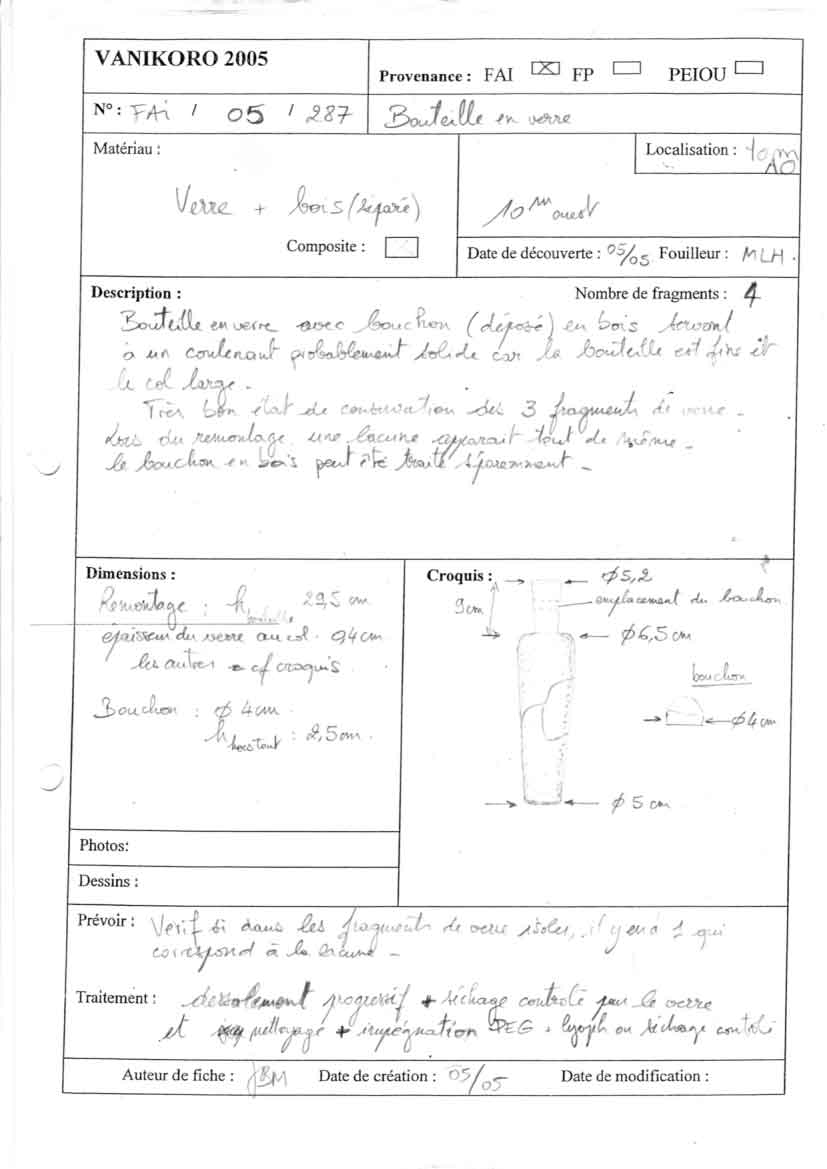 VANIKORO 2005
Provenance : FAI ☒ FP ☐ PEIOU ☐
N° : FAi / 05 / 287
Bouteille en verre
Matériau :
Verre + bois (séparé)
Composite : ☐
Localisation : 10m
AO
10m ouest
Date de découverte : 05/05 Fouilleur : MLH.
Description :
Nombre de fragments : 4
Bouteille en verre avec bouchon (déposé) en bois servant
à un contenant probablement solide car la bouteille est fine et
le col large.
Très bon état de conservation des 3 fragments de verre.
Lors du remontage, une lacune apparait tout de même.
le bouchon en bois peut être traité séparemment.
Dimensions :
Remontage : h bouteille 29,5 cm
épaisseur du verre au col. 0,4 cm
les autres cf croquis.
Bouchon : φ 4cm.
h hors tout : 2,5cm.
Croquis :
φ5,2
9cm
emplacement du bouchon
φ6,5 cm
bouchon
φ4cm
φ 5 cm
Photos:
Dessins :
Prévoir : Verif si dans les fragments de verre isolés, il y en a 1 qui
correspond à la lacune -
Traitement : dessalement progressif + séchage controlé pour le verre
et nettoyage + imprégnation PEG + lyoph ou séchage controlé
Auteur de fiche : JBM Date de création : 05/05 Date de modification :